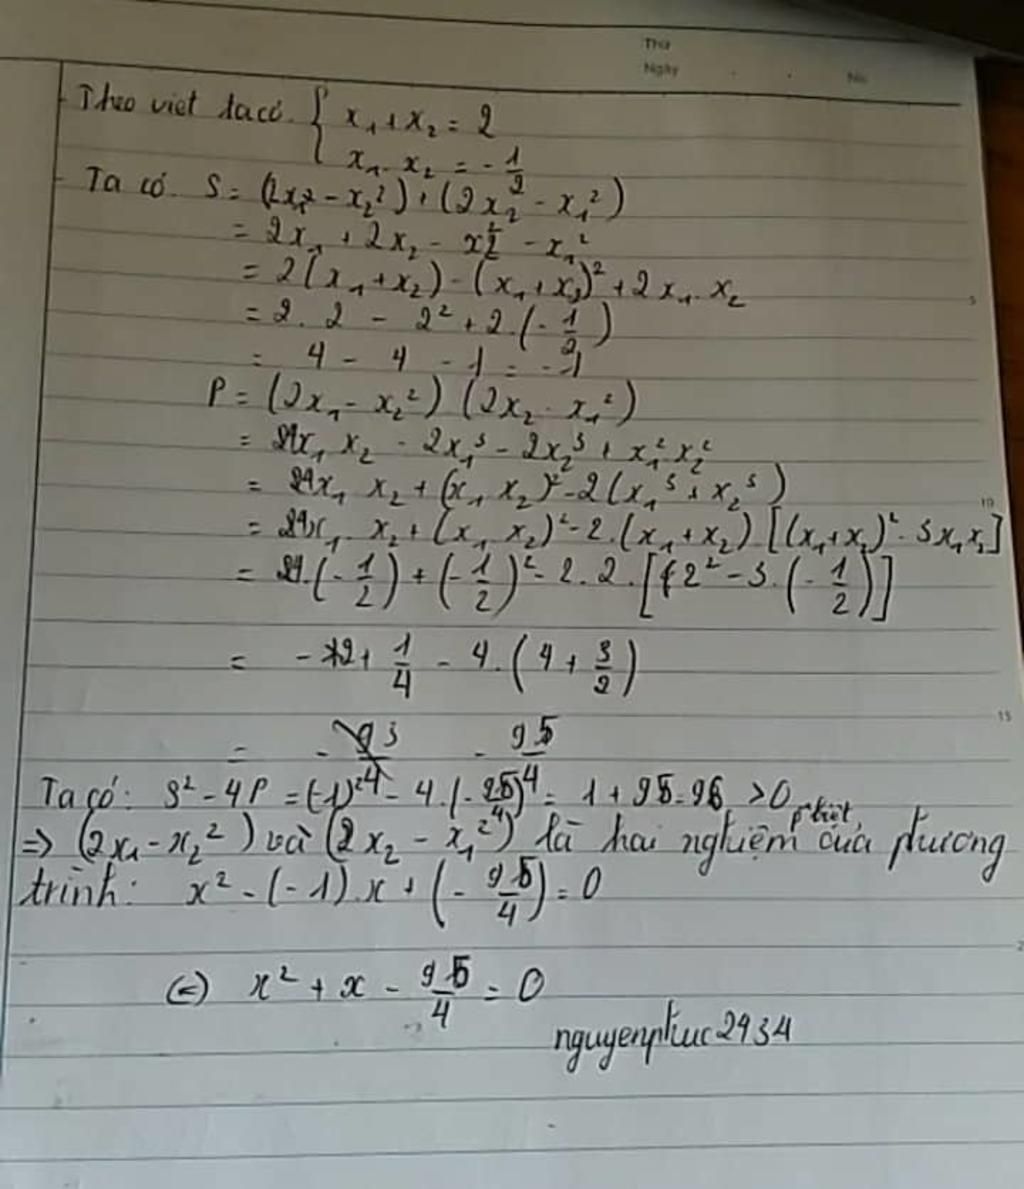 Thứ
Ngày No
Theo viet ta có { x₁ + x₂ = 2
x₁ . x₂ = - 1/2
Ta có S = (2x₁ - x₂²) + (2x₂ - x₁²)
= 2x₁ + 2x₂ - x₂² - x₁²
= 2(x₁ + x₂) - (x₁ + x₂)² + 2x₁ . x₂
= 2 . 2 - 2² + 2 . (- 1/2)
= 4 - 4 - 1 = -1
P = (2x₁ - x₂²) (2x₂ - x₁²)
= 4x₁ x₂ - 2x₁³ - 2x₂³ + x₁² x₂²
= 4x₁ x₂ + (x₁ x₂)² - 2(x₁³ + x₂³)
= 4x₁ . x₂ + (x₁ x₂)² - 2 . (x₁ + x₂) . [(x₁ + x₂)² - 3x₁x₂]
= 4 . (- 1/2) + (- 1/2)² - 2 . 2 . [2² - 3 . (- 1/2)]
= -2 + 1/4 - 4 . (4 + 3/2)
= - 95/4
Ta có: S² - 4P = (-1)² - 4 . (- 95/4) = 1 + 95 = 96 > 0
=> (2x₁ - x₂²) và (2x₂ - x₁²) là hai nghiệm của phương
trình: x² - (-1) . x + (- 95/4) = 0
(=) x² + x - 95/4 = 0
nguyenphuc2934
5
10
15